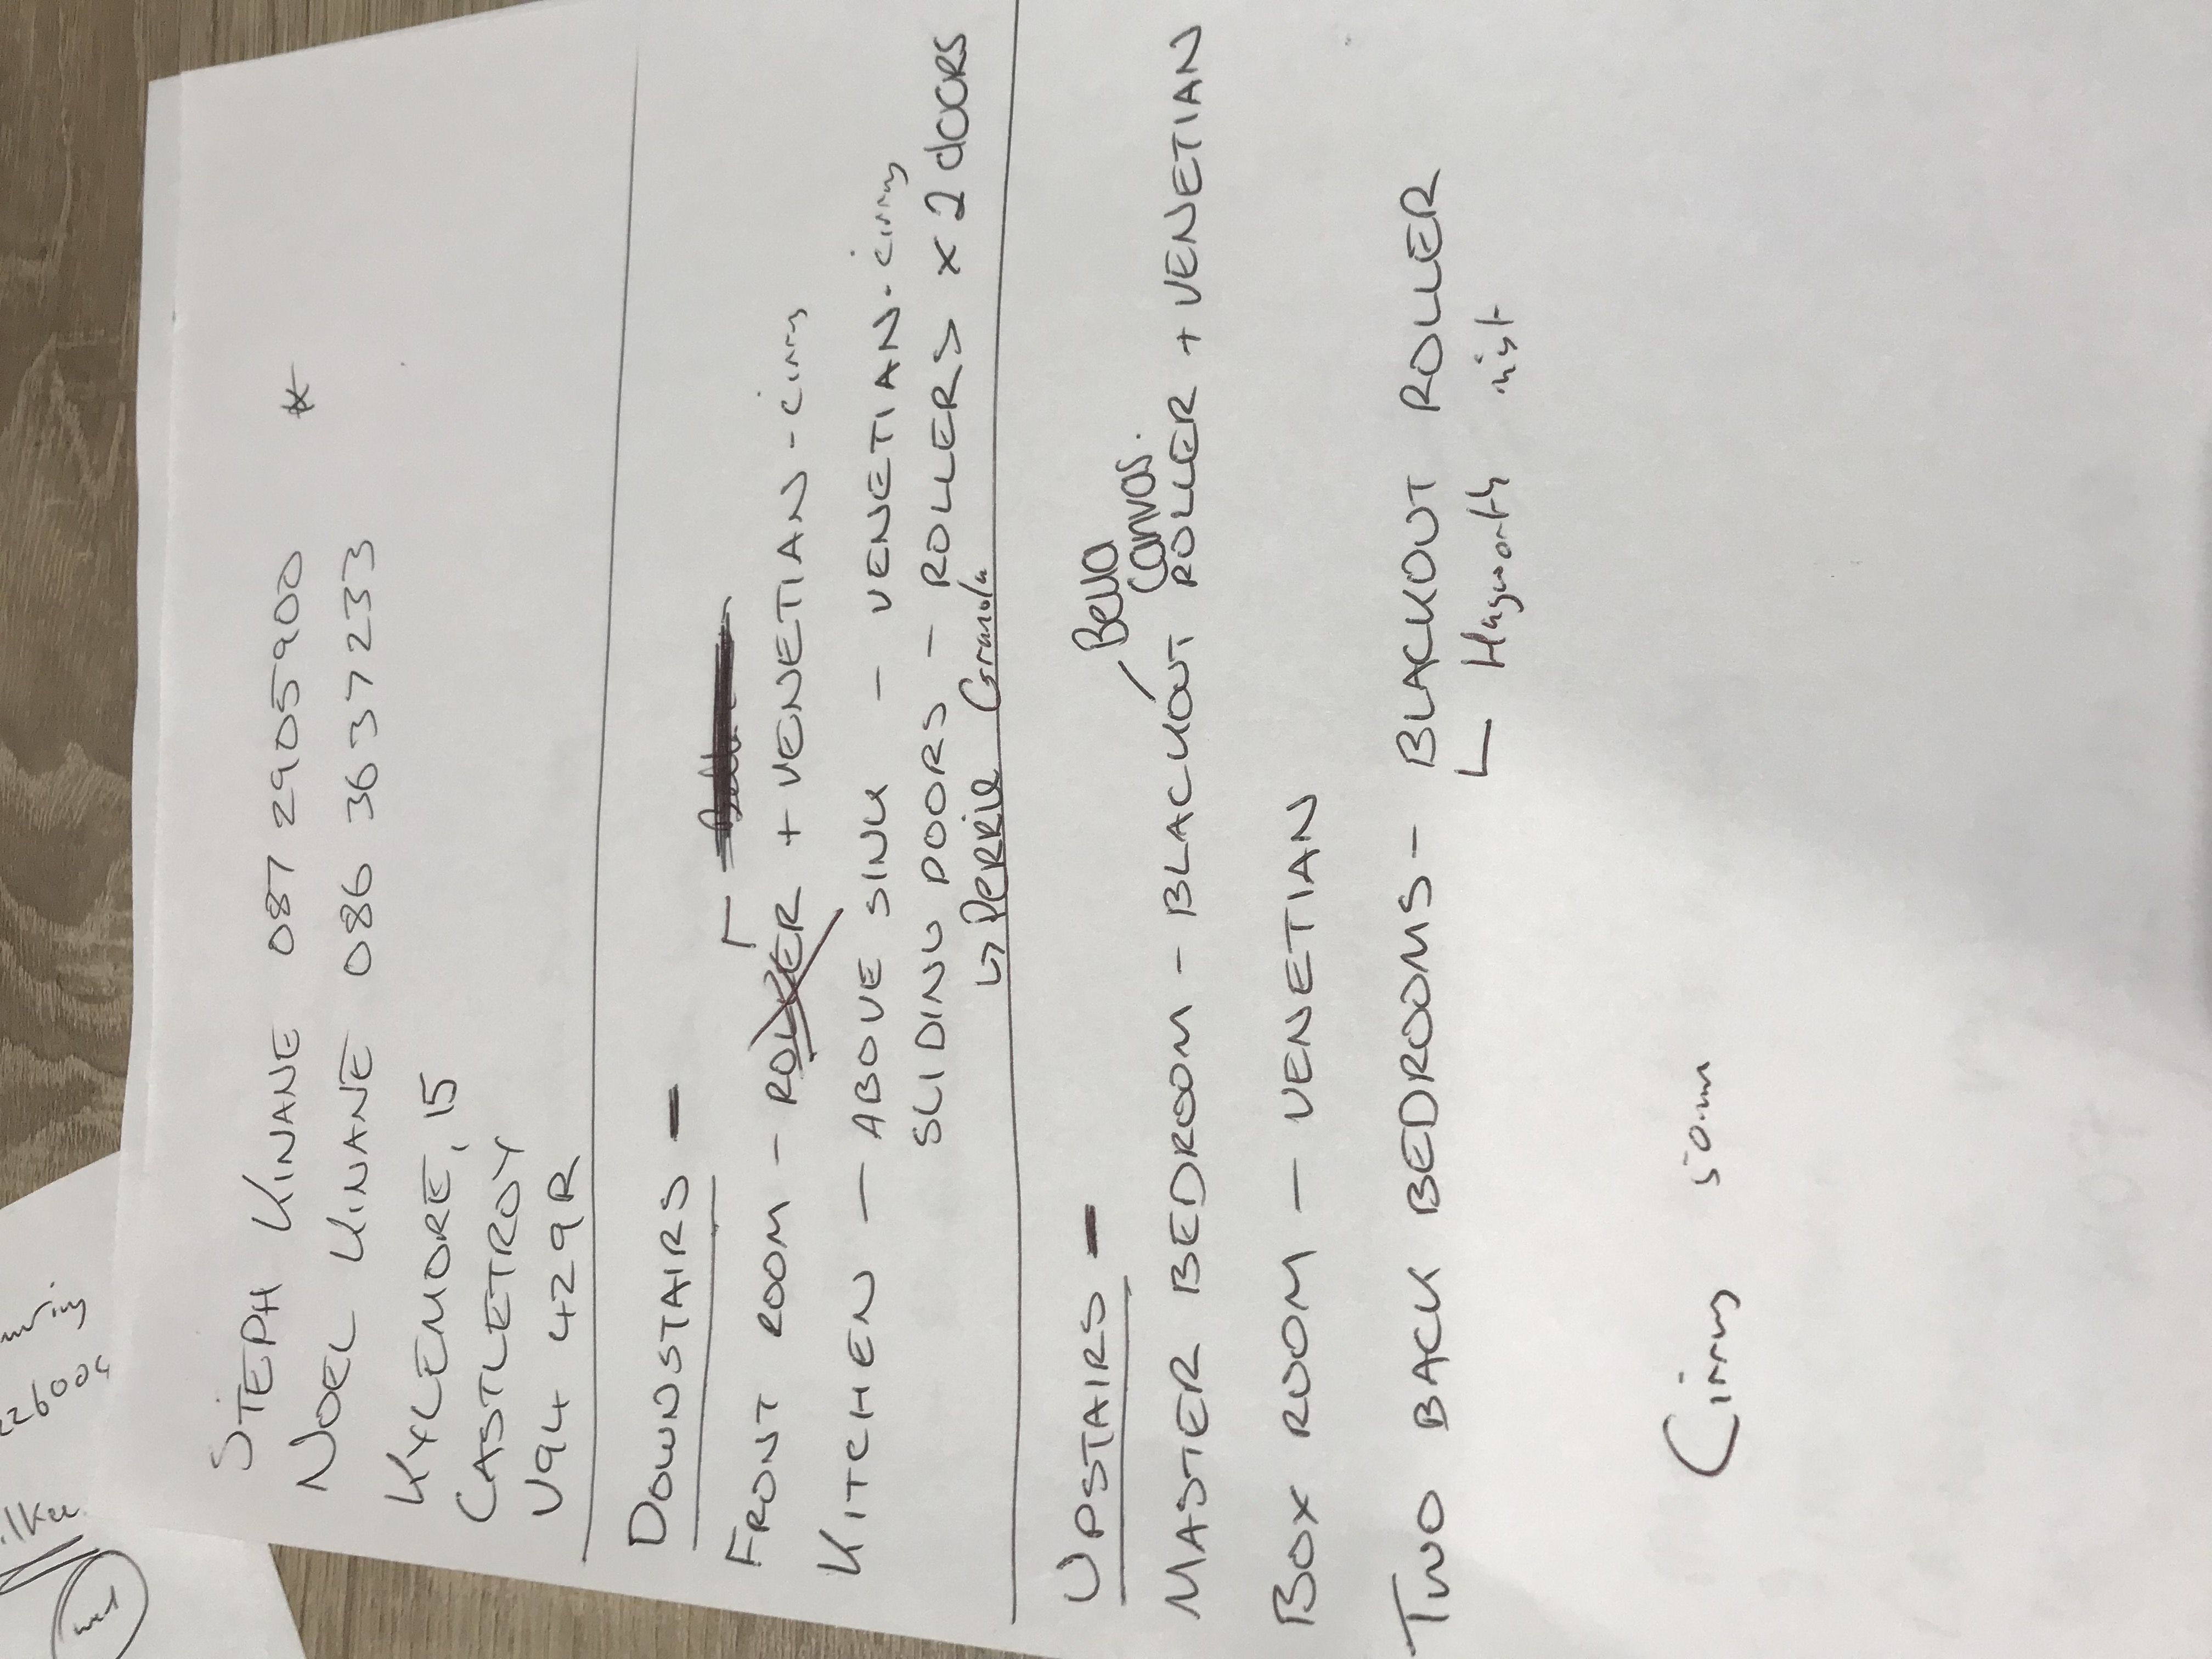 STEPH KINANE 087 2905900 *
NOEL KINANE 086 3637233
KYLEMORE, 15
CASTLETROY
V94 429R
DOWNSTAIRS -
FRONT ROOM - ROLLER + VENETIAN - cirrus
KITCHEN - ABOVE SINK - VENETIAN - cirrus
SLIDING DOORS - ROLLERS x 2 doors
↳ Perrie Granola
UPSTAIRS -
Bella
Canvas.
MASTER BEDROOM - BLACKOUT ROLLER + VENETIAN
BOX ROOM - VENETIAN
TWO BACK BEDROOMS - BLACKOUT ROLLER
mist
Cirrus 50mm